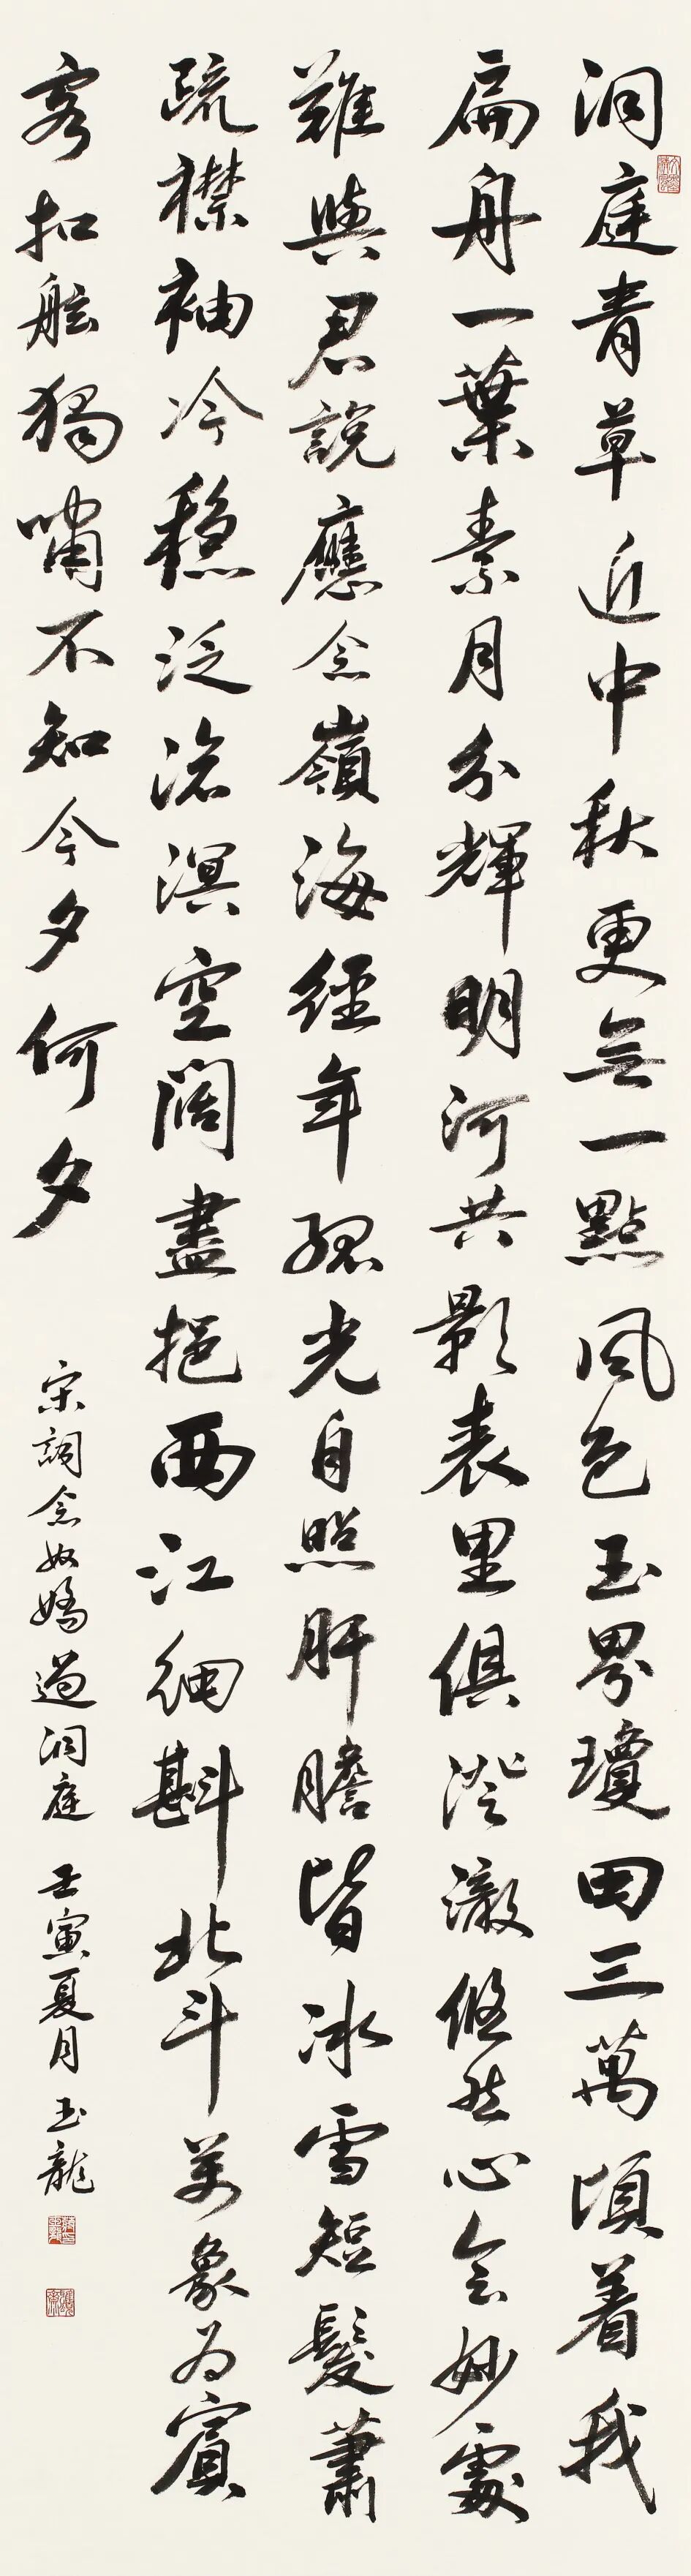 洞庭青草近中秋更無一點風色玉界瓊田三萬頃着我
扁舟一葉素月分輝明河共影表里俱澄澈悠然心會妙處
難與君說應念嶺海經年孤光自照肝膽皆冰雪短髮蕭
疏襟袖冷穩泛滄溟空闊盡挹西江細斟北斗萬象為賓
客扣舷獨嘯不知今夕何夕
宋詞念奴嬌過洞庭 壬寅夏月 玉龍